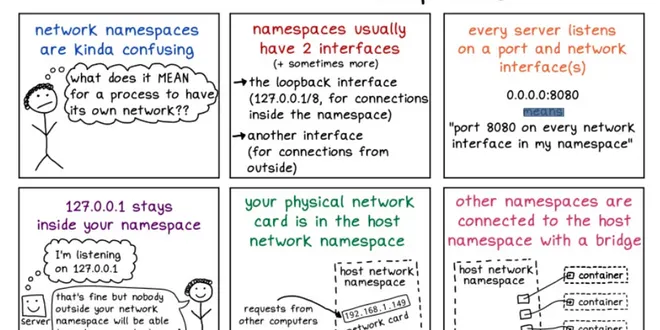 network namespaces
are kinda confusing
what does it MEAN
for a process to have
its own network??
namespaces usually
have 2 interfaces
(+ sometimes more)
→the loopback interface
(127.0.0.1/8, for connections
inside the namespace)
→another interface
(for connections from
outside)
every server listens
on a port and network
interface(s)
0.0.0.0:8080
means
"port 8080 on every network
interface in my namespace"
127.0.0.1 stays
inside your namespace
I'm listening
on 127.0.0.1
that's fine but nobody
outside your network
namespace will be able
server
your physical network
card is in the host
network namespace
host network
namespace
192.168.1.149
requests from
other computers
network card
other namespaces are
connected to the host
namespace with a bridge
host network
namespace
container
container
container